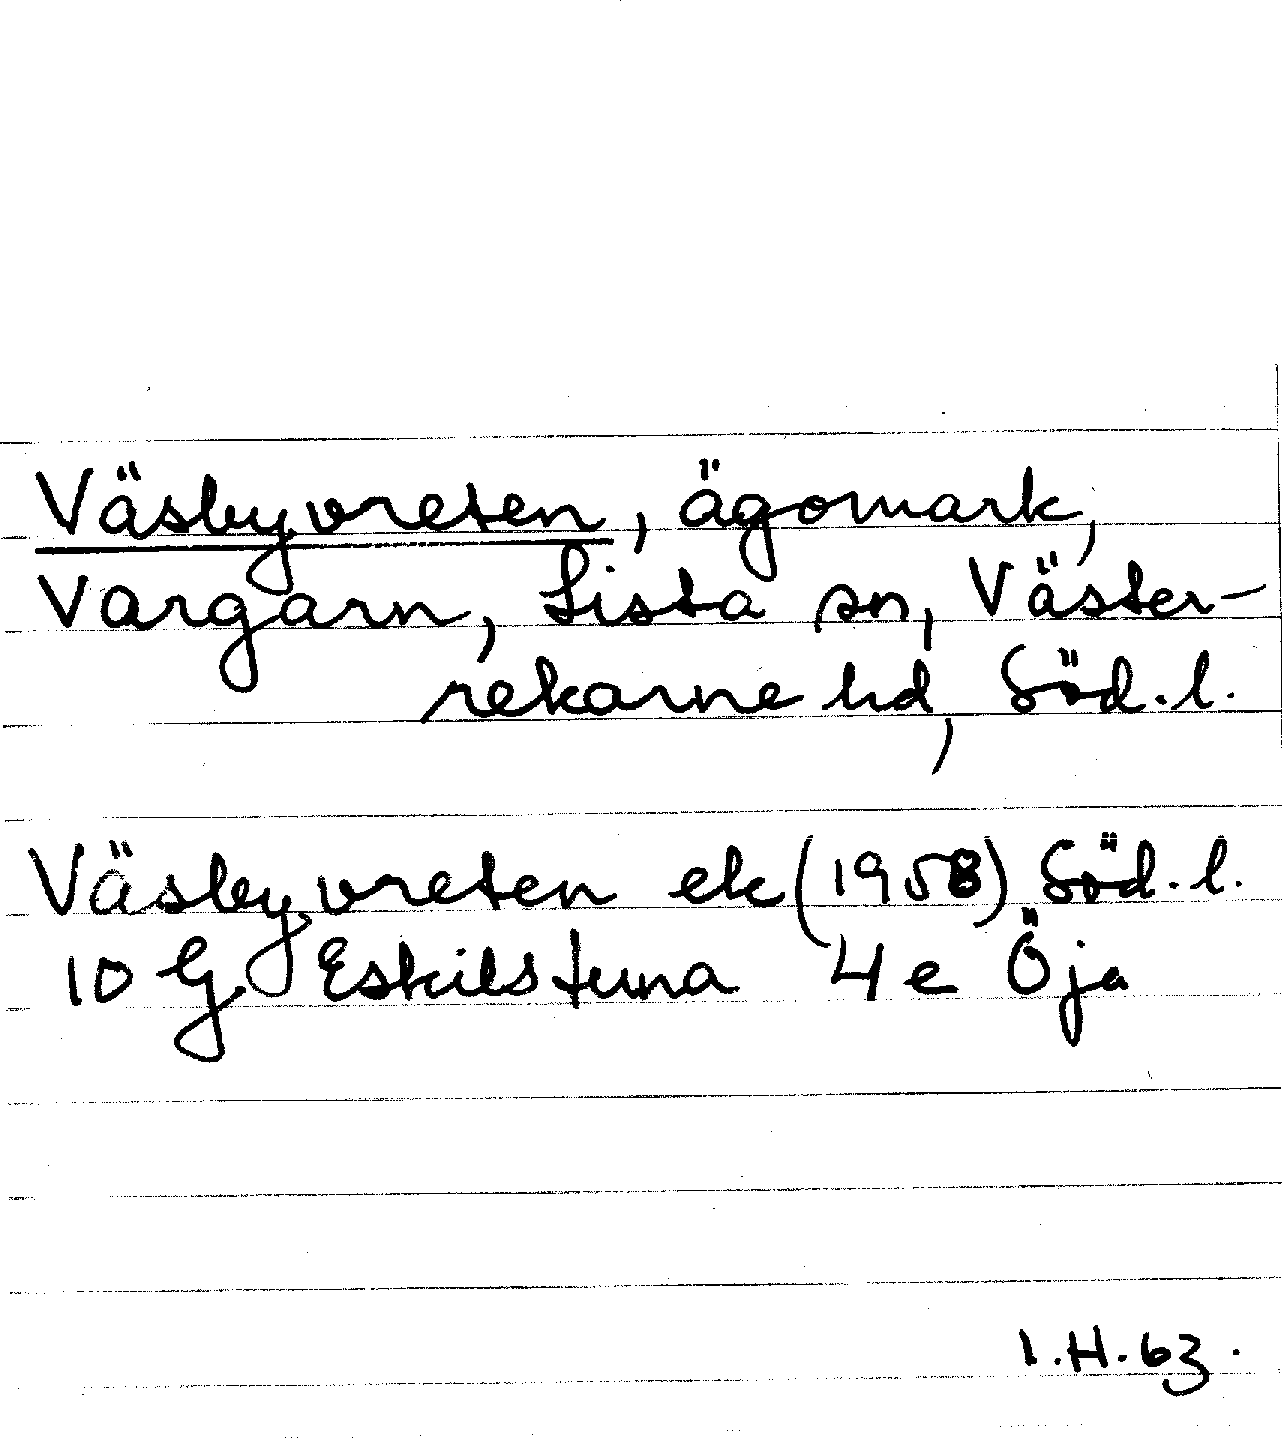 Väsbyvreten, ägomark,
Vargarn, Lista sn, Väster-
rekarne hd, Söd.l.
Väsbyvreten ek (1958) Söd.l.
10 G Eskilstuna 4 e Öja
I.H.63.